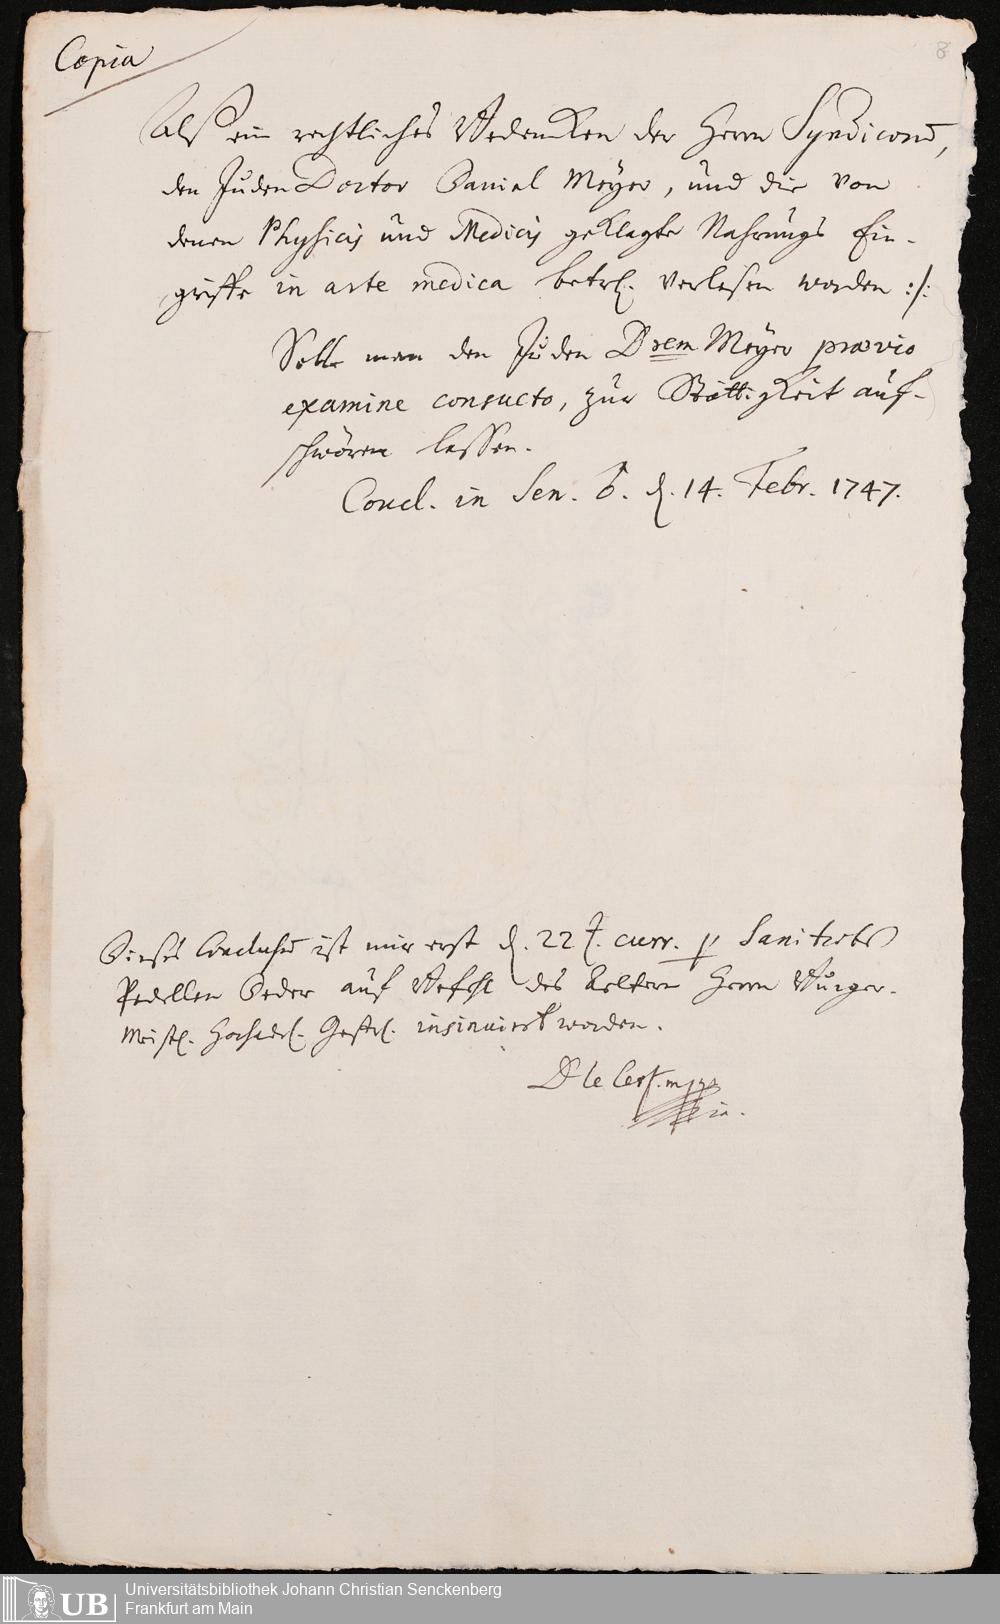 Copia
8
Alß ein rechtliches Bedencken der Herrn Syndicorum,
den Juden Doctor Daniel Meyer, und die von
denen Physicis und Medicis geklagte Nahrungs Ein-
griffe in arte medica betrl. verlesen worden :/:
Solle man den Juden Drem Meyer prævio
examine consueto, zur Stättigkeit auf-
schwören lassen.
Concl. in Sen. d. 14. Febr. 1747.
Dieses Conclusum ist mir erst d. 22 t. curr. p Sanitets
Pedellen Beder auf Befehl des Aeltern Herrn Burger-
Meistr. Hochadl. Gestrl. insinuiert worden.
D le Cerf. mppr
ia.
Universitätsbibliothek Johann Christian Senckenberg
Frankfurt am Main
UB